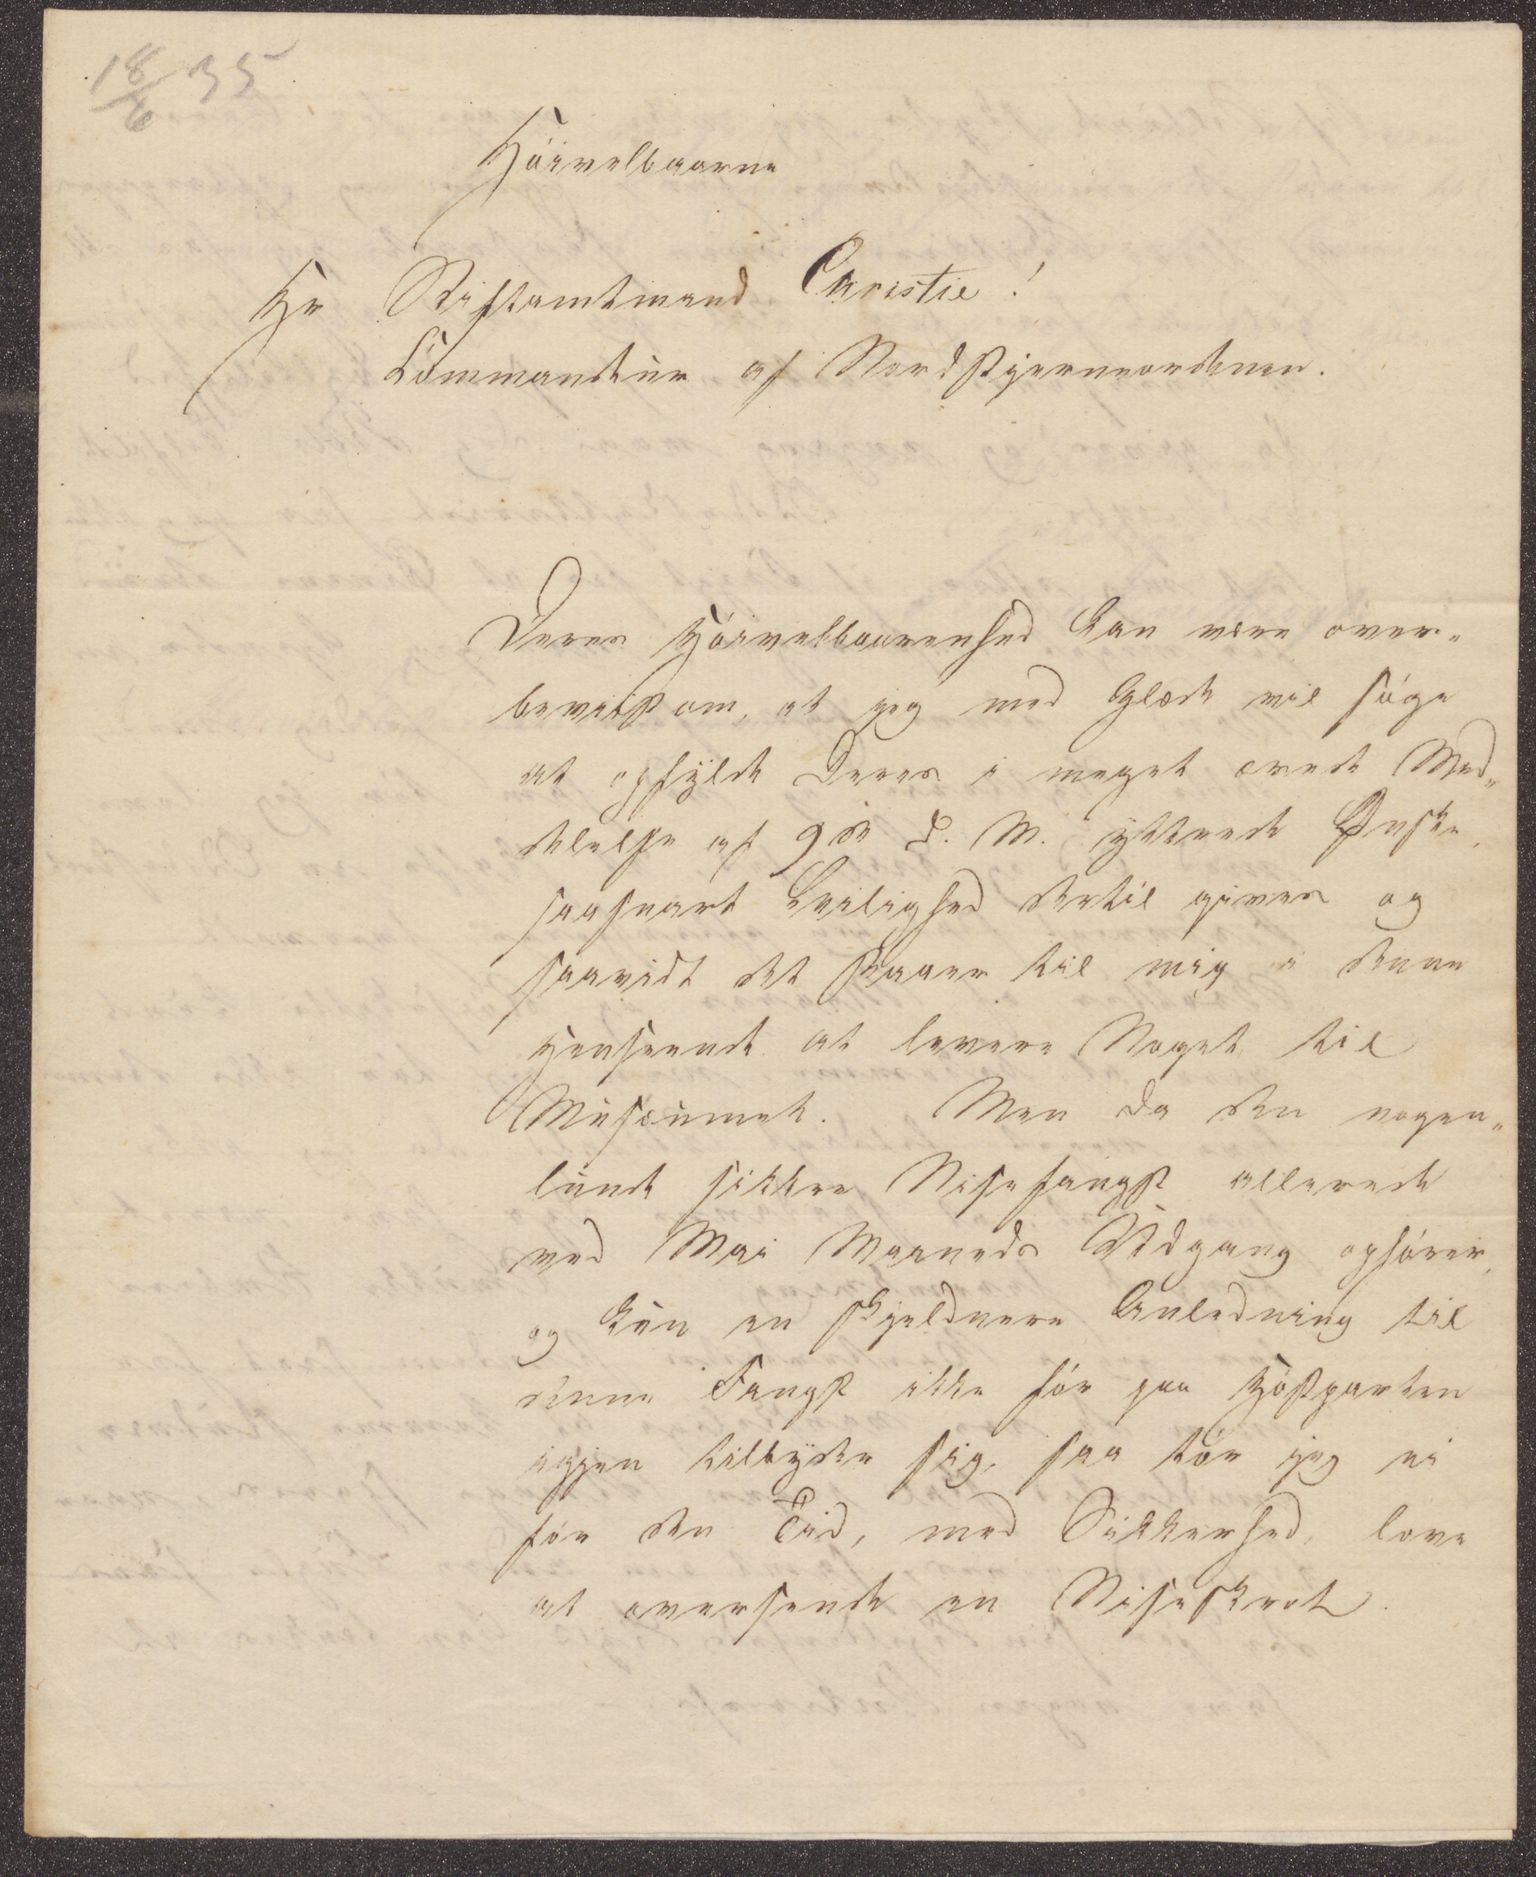 18/6 35
Høivelbaarne
Hr Stiftamtmand Christie!
Commandeur af Nordstjerneordenen.
Deres Høivelbaarenhed kan være over-
beviist om, at jeg med Glæde vil søge
at opfylde Deres i meget ærede Med-
delelse af 9de d. M. yttrede Ønske,
saasnart Leilighed dertil gives og
saavidt det staaer til mig i denne
Henseende at levere Noget til
Musæumet. Men da den nogen-
lunde sikkre Nisefangst allerede
ved Mai Maaneds Udgang ophører,
og kun en skjeldnere Anledning til
denne Fangst ikke før paa Høstparten
igjen tilbyder sig, saa tør jeg ei
før den Tid, med Sikkerhed, love
at oversende en Niseskrot.